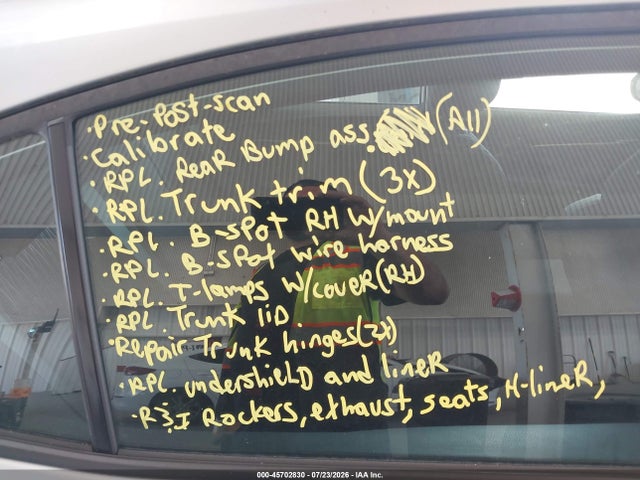 · Pre-Post-scan
· Calibrate
· RPL. Rear Bump ass. (All)
· RPL. Trunk trim (3x)
· RPL. B-spot RH W/mount
· RPL. B-spot wire harness
· RPL. T-lamps W/cover (RH)
· RPL. Trunk liD.
· Repair Trunk hinges (2x)
· RPL. undershielD and lineR
· R&I Rockers, exhaust, seats, H-lineR,
000-45702830 - 07/23/2026 - IAA Inc.